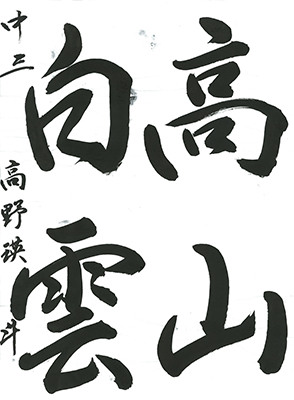 高山
白雲
中三 高野瑛斗